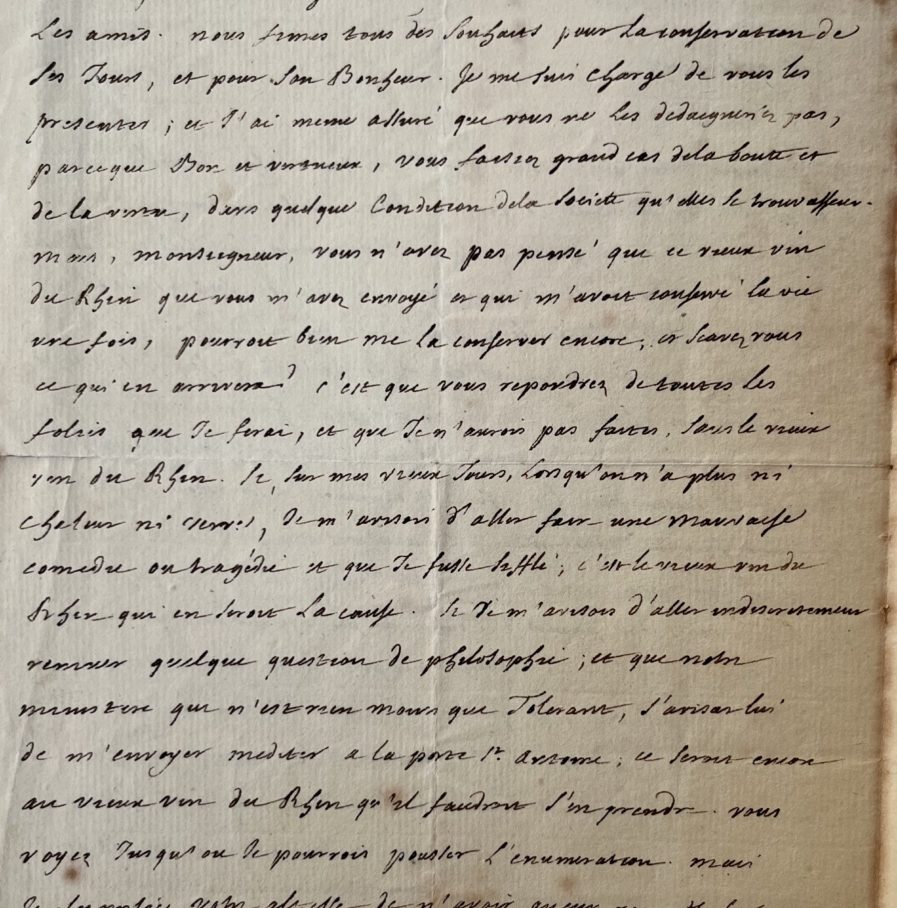 les amis. nous fimes tous des souhaits pour la conservation de
ses Jours, et pour son Bonheur. Je me suis chargé de vous les
presenter; et J'ai meme assuré que vous ne les dedaigneriez pas,
parceque Bon et vertueux, vous faisiez grand cas de la bonté et
de la vertu, dans quelque Condition de la societé qu'elles se trouvassent.
mais, monseigneur, vous n'avez pas pensé que ce vieux vin
du Rhin que vous m'avez envoyé et qui m'avoit conservé la vie
une fois, pourroit bien me la conserver encore, et scavez vous
ce qui en arrivera? c'est que vous repondrez de toutes les
folies que Je ferai, et que Je n'aurois pas faites, sans le vieux
vin du Rhin. si, sur mes vieux Jours, Lorsqu'on n'a plus ni
chaleur ni verve, Je m'avisois d'aller faire une mauvaise
comedie ou tragédie et que Je fusse sifflé; c'est le vieux vin du
Rhin qui en seroit la cause. si Je m'avisois d'aller indiscretement
remuer quelque question de philosophie; et que notre
ministere qui n'est rien moins que Tolerant, s'avisat lui
de m'envoyer mediter a la porte St. Antoine; ce seroit encore
au vieux vin du Rhin qu'il faudroit s'en prendre. vous
voyez Jusqu'ou Je pourrois pousser L'enumeration. mais
Je votre altesse de n'avoir